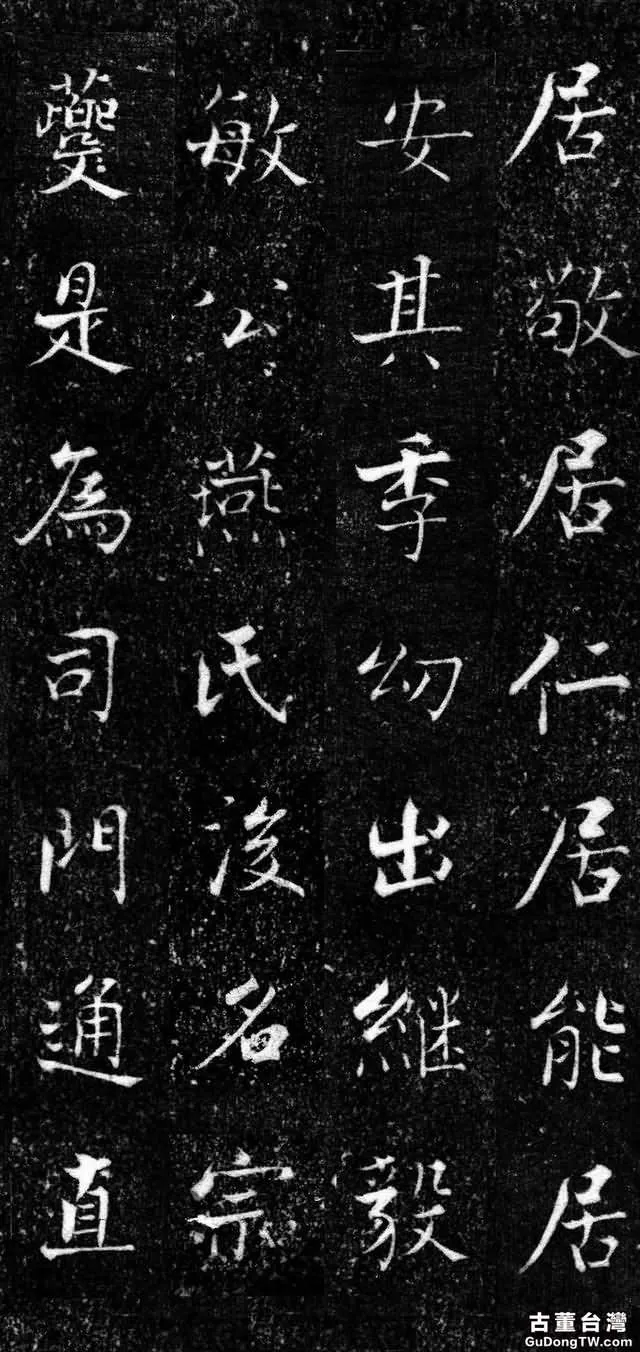 居敬居仁居能居
安其季幼出継毅
敏公燕氏後名宗
夔是為司門通直
古董台灣
GuDongTW.com